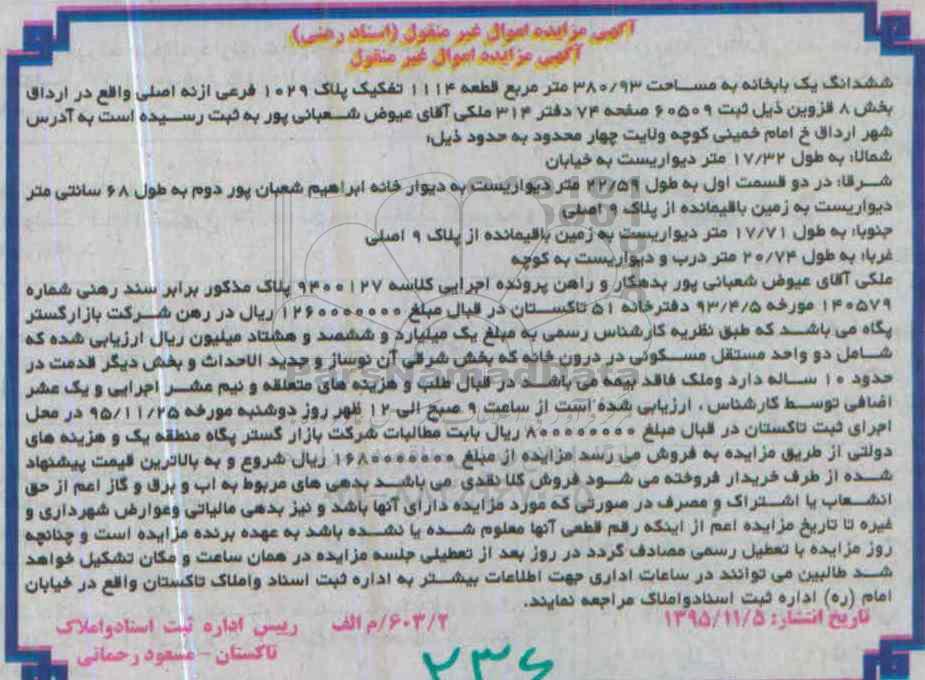 آگهی مزایده اموال غیر منقول (اسناد رهنی)
آگهی مزایده اموال غیر منقول
ششدانگ یک بابخانه به مساحت ۳۸۰/۹۳ متر مربع قطعه ۱۱۱۴ تفکیک پلاک ۱۰۲۹ فرعی ازنه اصلی واقع در ارداق
بخش ۸ قزوین ذیل ثبت ۶۰۵۰۹ صفحه ۷۴ دفتر ۳۱۴ ملکی آقای عیوض شعبانی پور به ثبت رسیده است به آدرس
شهر ارداق خ امام خمینی کوچه ولایت چهار محدود به حدود ذیل:
شمالا: به طول ۱۷/۳۲ متر دیواریست به خیابان
شرقا: در دو قسمت اول به طول ۲۲/۵۱ متر دیواریست به دیوار خانه ابراهیم شعبان پور دوم به طول ۶۸ سانتی متر
دیواریست به زمین باقیمانده از پلاک ۹ اصلی
جنوبا: به طول ۱۷/۷۱ متر دیواریست به زمین باقیمانده از پلاک ۹ اصلی
غربا: به طول ۲۰/۷۴ متر درب و دیواریست به کوچه
ملکی آقای عیوض شعبانی پور بدهکار و راهن پرونده اجرایی کلاسه ۹۴۰۰۱۲۷ پلاک مذکور برابر سند رهنی شماره
۱۴۰۵۷۹ مورخه ۹۳/۴/۵ دفترخانه ۵۱ تاکستان در قبال مبلغ ۱۲۶۰۰۰۰۰۰۰ ریال در رهن شرکت بازارگستر
پگاه می باشد که طبق نظریه کارشناس رسمی به مبلغ یک میلیارد و ششصد و هشتاد میلیون ریال ارزیابی شده که
شامل دو واحد مستقل مسکونی در درون خانه که بخش شرقی آن نوساز و جدید الاحداث و بخش دیگر قدمت در
حدود ۱۰ ساله دارد وملک فاقد بیمه می باشد در قبال طلب و هزینه های متعلقه و نیم عشر اجرایی و یک عشر
اضافی توسط کارشناس ، ارزیابی شده است از ساعت ۹ صبح الی ۱۲ ظهر روز دوشنبه مورخه ۹۵/۱۱/۲۵ در محل
اجرای ثبت تاکستان در قبال مبلغ ۸۰۰۰۰۰۰۰۰ ریال بابت مطالبات شرکت بازار گستر پگاه منطقه یک و هزینه های
دولتی از طریق مزایده به فروش می رسد مزایده از مبلغ ۱۶۸۰۰۰۰۰۰۰ ریال شروع و به بالاترین قیمت پیشنهاد
شده از طرف خریدار فروخته می شود فروش کلا نقدی می باشد بدهی های مربوط به اب و برق و گاز اعم از حق
انشعاب یا اشتراک و مصرف در صورتی که مورد مزایده دارای آنها باشد و نیز بدهی مالیاتی وعوارض شهرداری و
غیره تا تاریخ مزایده اعم از اینکه رقم قطعی آنها معلوم شده یا نشده باشد به عهده برنده مزایده است و چنانچه
روز مزایده با تعطیل رسمی مصادف گردد در روز بعد از تعطیلی جلسه مزایده در همان ساعت و مکان تشکیل خواهد
شد طالبین می توانند در ساعات اداری جهت اطلاعات بیشتر به اداره ثبت اسناد واملاک تاکستان واقع در خیابان
امام (ره) اداره ثبت اسنادواملاک مراجعه نمایند.
تاریخ انتشار: ۱۳۹۵/۱۱/۵ ۶۰۳/۲/م الف رییس اداره ثبت اسنادواملاک
تاکستان - مسعود رحمانی
۲۳۶
ParsNamadData